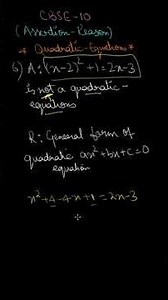 CBSE-10
(Assertion-Reason)
* Quadratic-Equations *
6) A: (x-2)² + 1 = 2x-3
is not a quadratic-
equations
R: General form of
quadratic ax²+bx+c=0
equation
x²+4-4x+1=2x-3